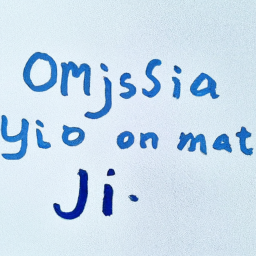 OMjsSia
yio on mat
Ji.